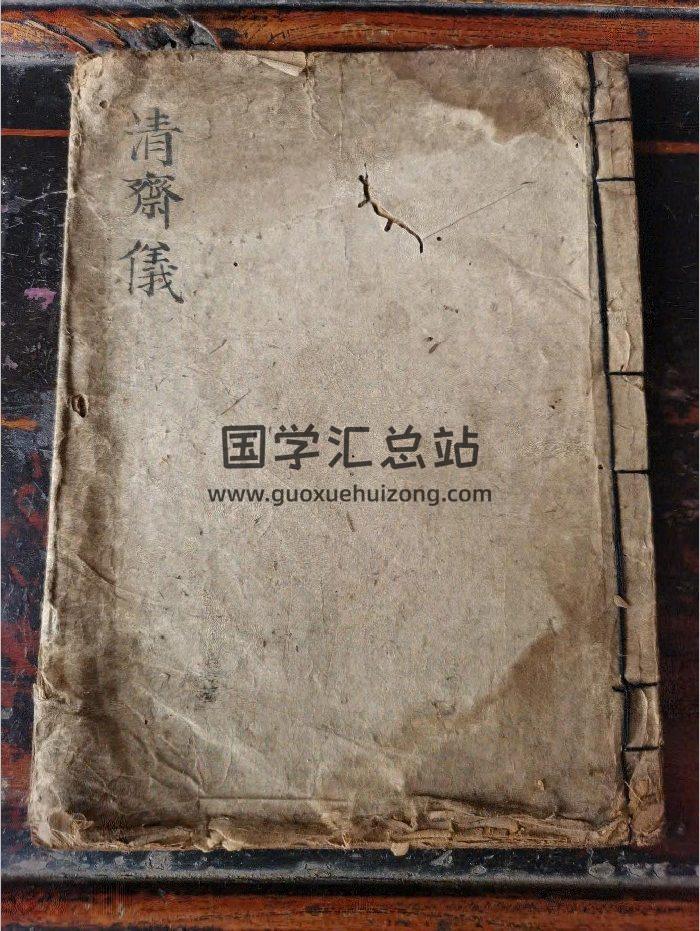 清齋儀
国学汇总站
www.guoxuehuizong.com